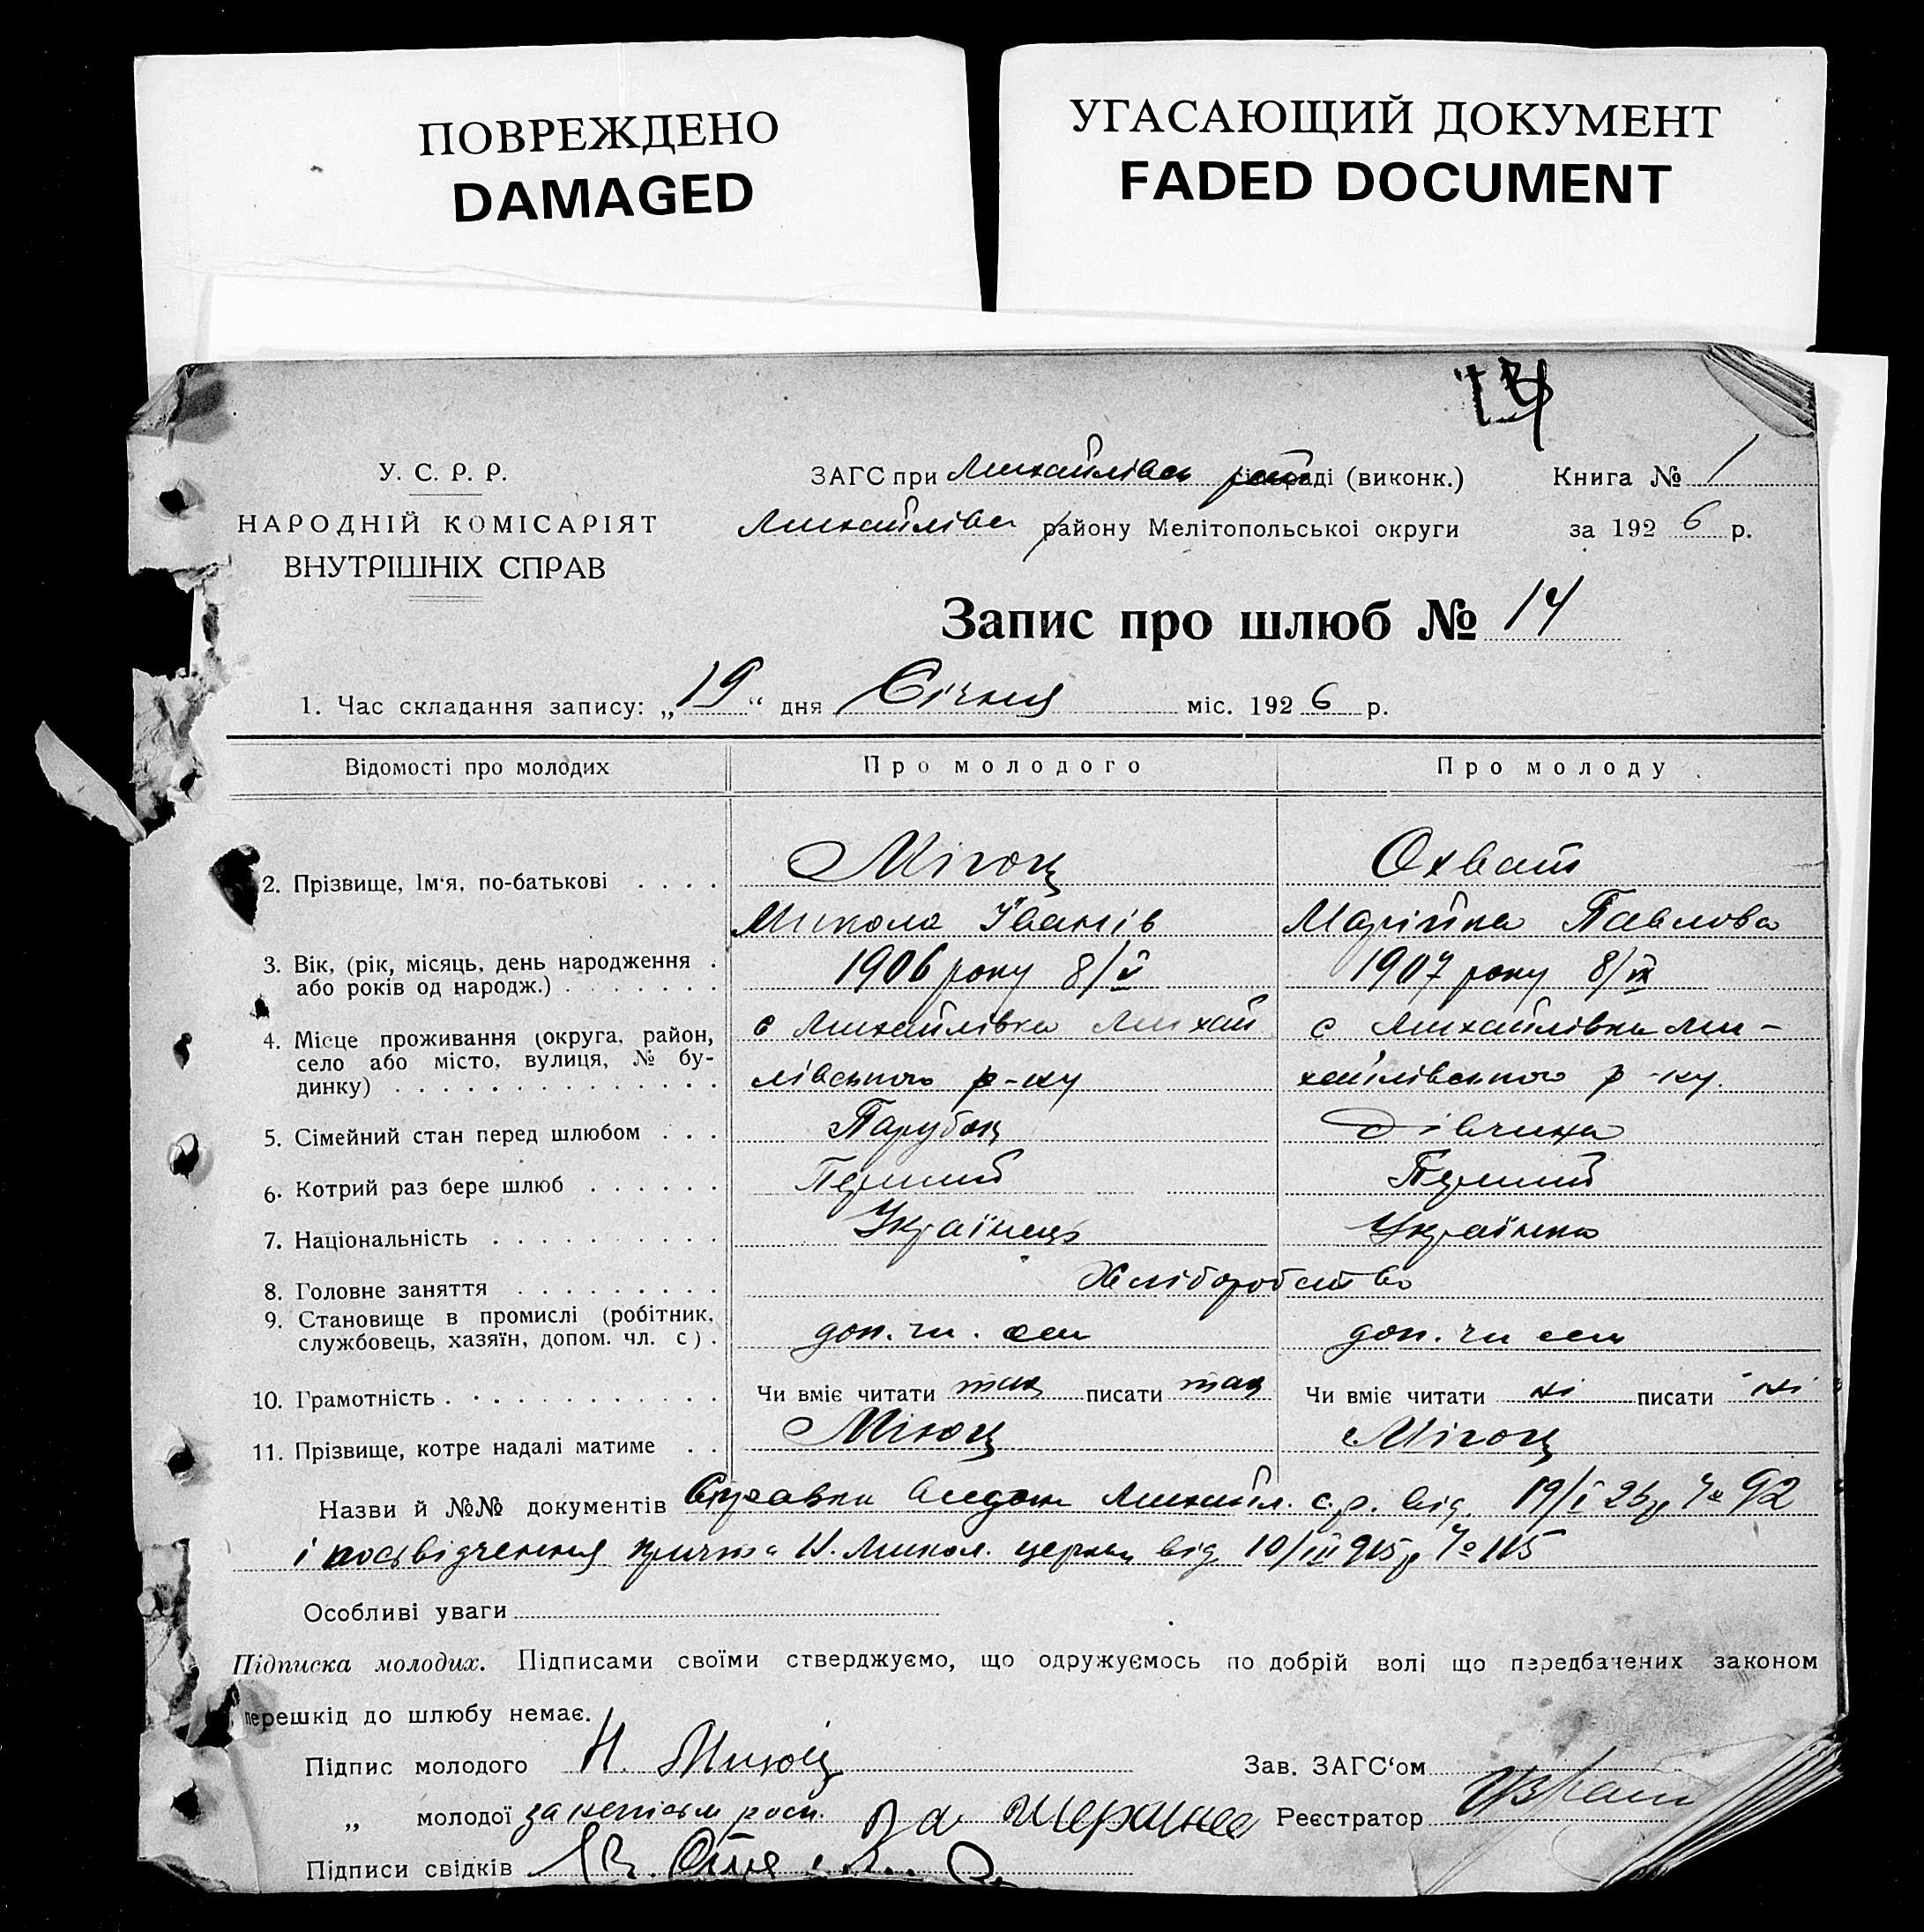 ПОВРЕЖДЕНО
DAMAGED
УГАСАЮЩИЙ ДОКУМЕНТ
FADED DOCUMENT
У. С. Р. Р.
НАРОДНІЙ КОМІСАРІЯТ
ВНУТРІШНІХ СПРАВ
ЗАГС при Михайлівск раді (виконк.) Книга № 1
району Мелітопольської округи за 1926 р.
Запис про шлюб № 14
1. Час складання запису: „19“ дня Січня міс. 1926 р.
Відомості про молодих Про молодого Про молоду
2. Прізвище, Ім'я, по-батькові . . . . Мігоц Охват
Микола Іванів Марійка Павлова
3. Вік, (рік, місяць, день народження . 1906 року 8/V 1907 року 8/IX
або років од народж.) . . . . . . .
4. Місце проживання (округа, район, с Михайлівка Михай с Михайлівка Ми-
село або місто, вулиця, № бу-
динку) . . . . . . . . . . . . . . лівського р-ну хайлівського р-ну.
5. Сімейний стан перед шлюбом . . . Парубок Дівчина
6. Котрий раз бере шлюб . . . . . . Перший Перший
7. Національність . . . . . . . . . . Українець Українка
8. Головне заняття . . . . . . . . . Хліборобство
9. Становище в промислі (робітник,
службовець, хазяїн, допом. чл. с) . доп. чл. сем доп. чл сем
10. Грамотність . . . . . . . . . . . . Чи вміє читати так писати так Чи вміє читати ні писати ні
11. Прізвище, котре надалі матиме . . Мігоц Мігоц
Назви й №№ документів Справки Михайл. с.р. від 19/I 26р № 92
і посвідчення причта Н. Микол. церкви від 10/III 915р № 115
Особливі уваги
Підписка молодих. Підписами своїми стверджуємо, що одружуємось по добрій волі що передбачених законом
перешкід до шлюбу немає.
Підпис молодого Н. Зав. ЗАГС‘ом
„ молодої за неписьм росп. Реєстратор
Підписи свідків